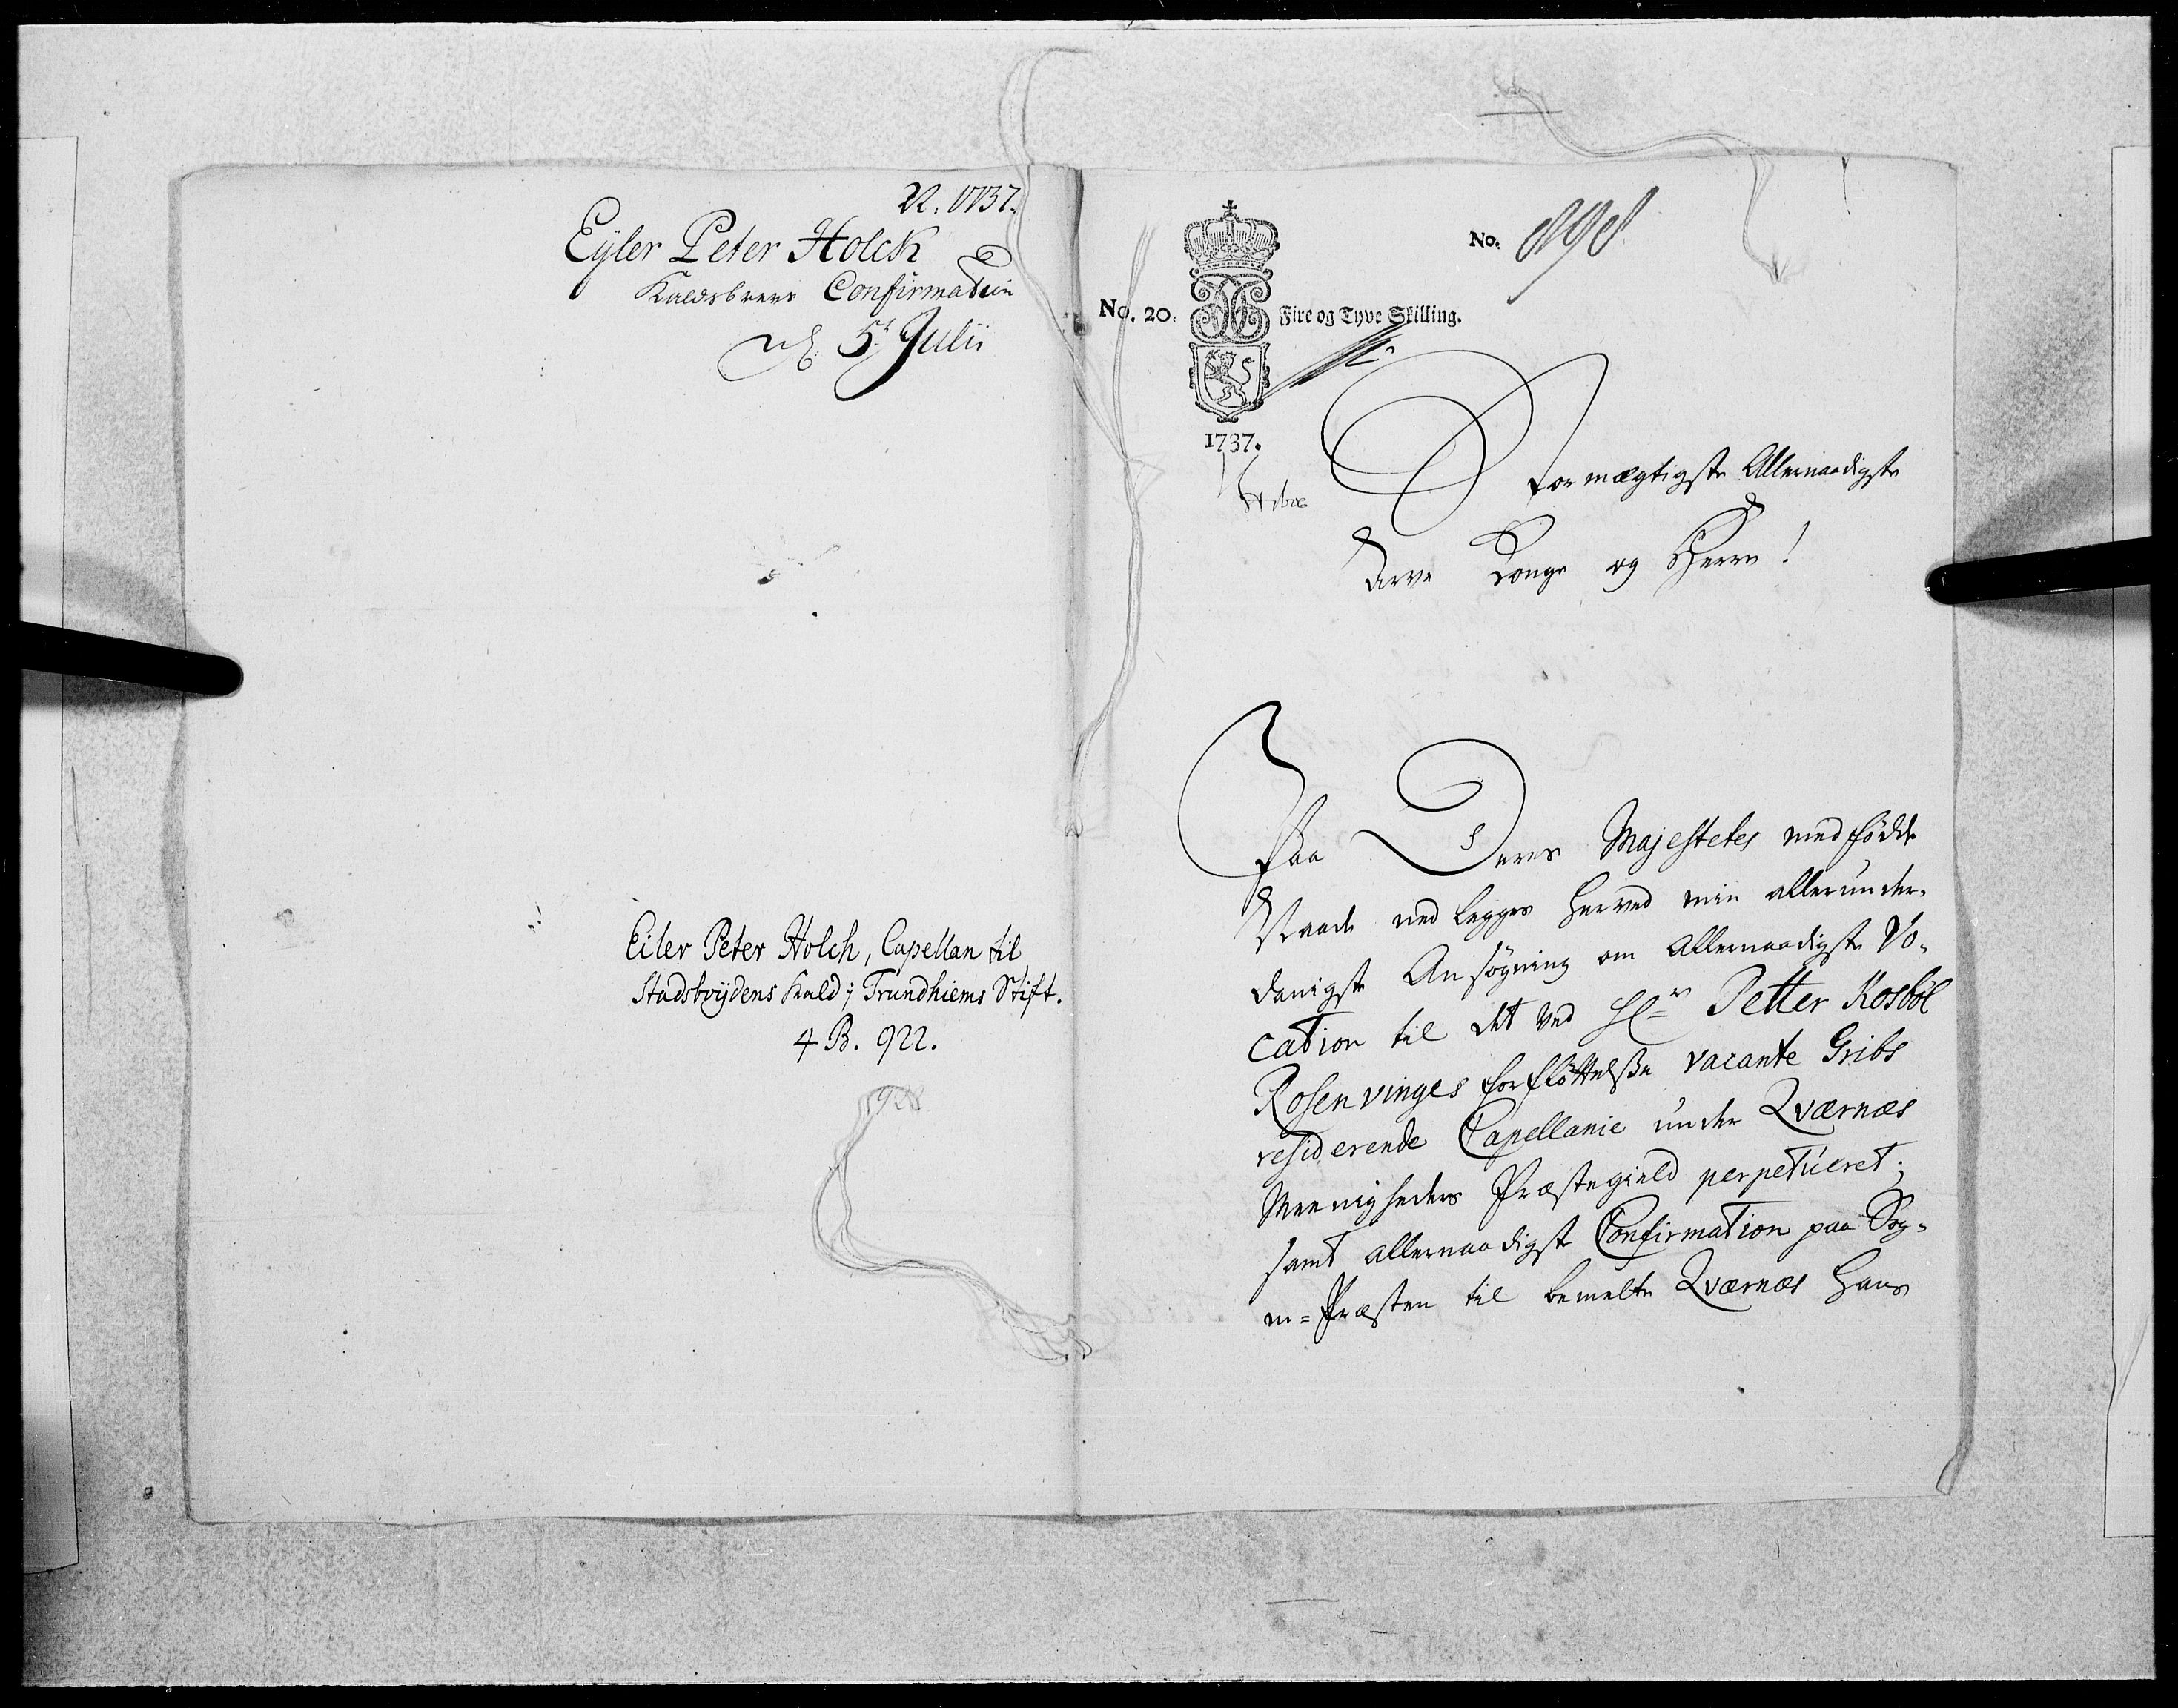 22. 1737.
Eyler Peter Holck
Kaldsbrevs Confirmation
d. 5t Julii
Eiler Peter Holch, Capellan til
Stadsboijdens Kald i Trundhiems Stift.
4 B. 922.
No. 898
No. 20. Fire og Tyve Skilling.
1737.
Stormægtigste Allernaadigste
Arve Konge og Herre!
Paa Deres Majestetes medfødde
Naade nedlegges herved min allerunder-
danigste Ansøgning om Allernaadigste Vo-
cation til det ved Hr. Petter Kosböl
Rosenvinges forflöttelse vacante Gribs
residerende Capellanie under Qværnæs
Menigheders Præstegield perpetueret;
samt allernaadigst Confirmation paa Sog-
ne-Præsten til bemelte Qværnæs Hans